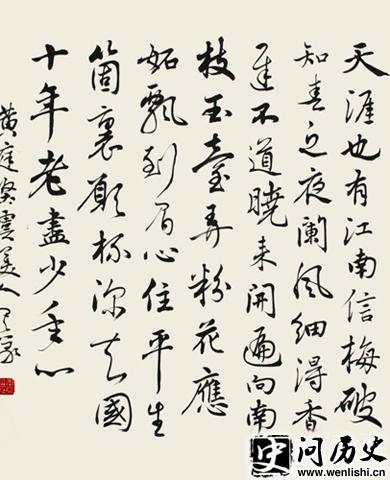 天涯也有江南信梅破
知春近夜闌風細得香
遲不道曉来開遍向南
枝玉臺弄粉花應
妬飄到眉心住平生
箇裏願杯深去國
十年老盡少年心
黄庭坚虞美人
史问历史
www.wenlishi.cn